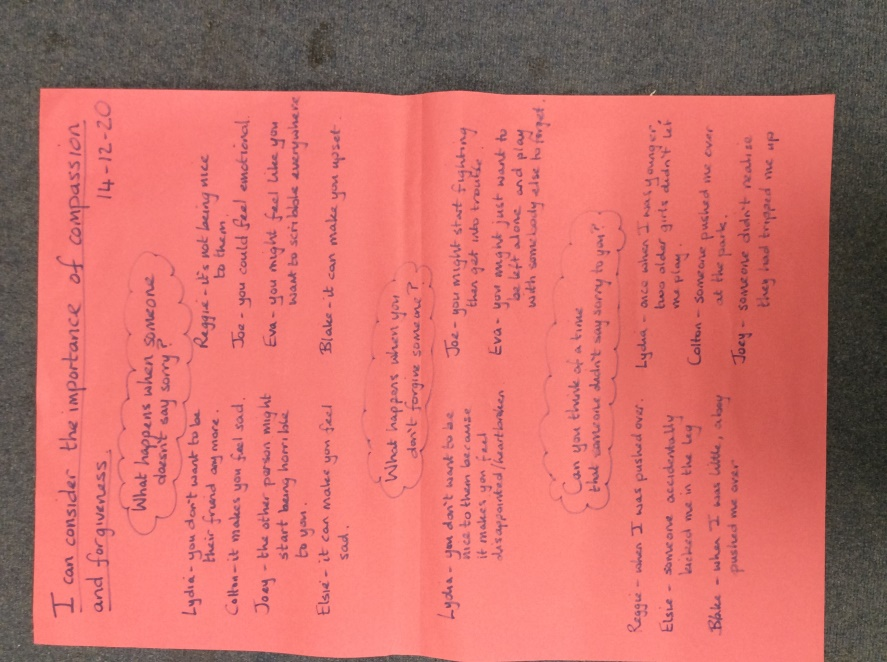 I can consider the importance of compassion
and forgiveness.
14-12-20
What happens when someone
doesn't say sorry?
Lydia - you don't want to be
their friend any more.
Colton - it makes you feel sad.
Joey - the other person might
start being horrible
to you.
Elsie - it can make you feel
sad.
Reggie - it's not being nice
to them.
Joe - you could feel emotional.
Eva - you might feel like you
want to scribble everywhere
Blake - it can make you upset.
What happens when you
don't forgive someone?
Lydia - you don't want to be
nice to them because
it makes you feel
disappointed/heartbroken
Joe - you might start fighting
then get into trouble.
Eva - you might just want to
be left alone and play
with somebody else to forget.
Can you think of a time
that someone didn't say sorry to you?
Reggie - when I was pushed over.
Elsie - someone accidentally
kicked me in the leg
Blake - when I was little, a boy
pushed me over
Lydia - once when I was younger,
two older girls didn't let
me play.
Colton - someone pushed me over
at the park.
Joey - someone didn't realise
they had tripped me up